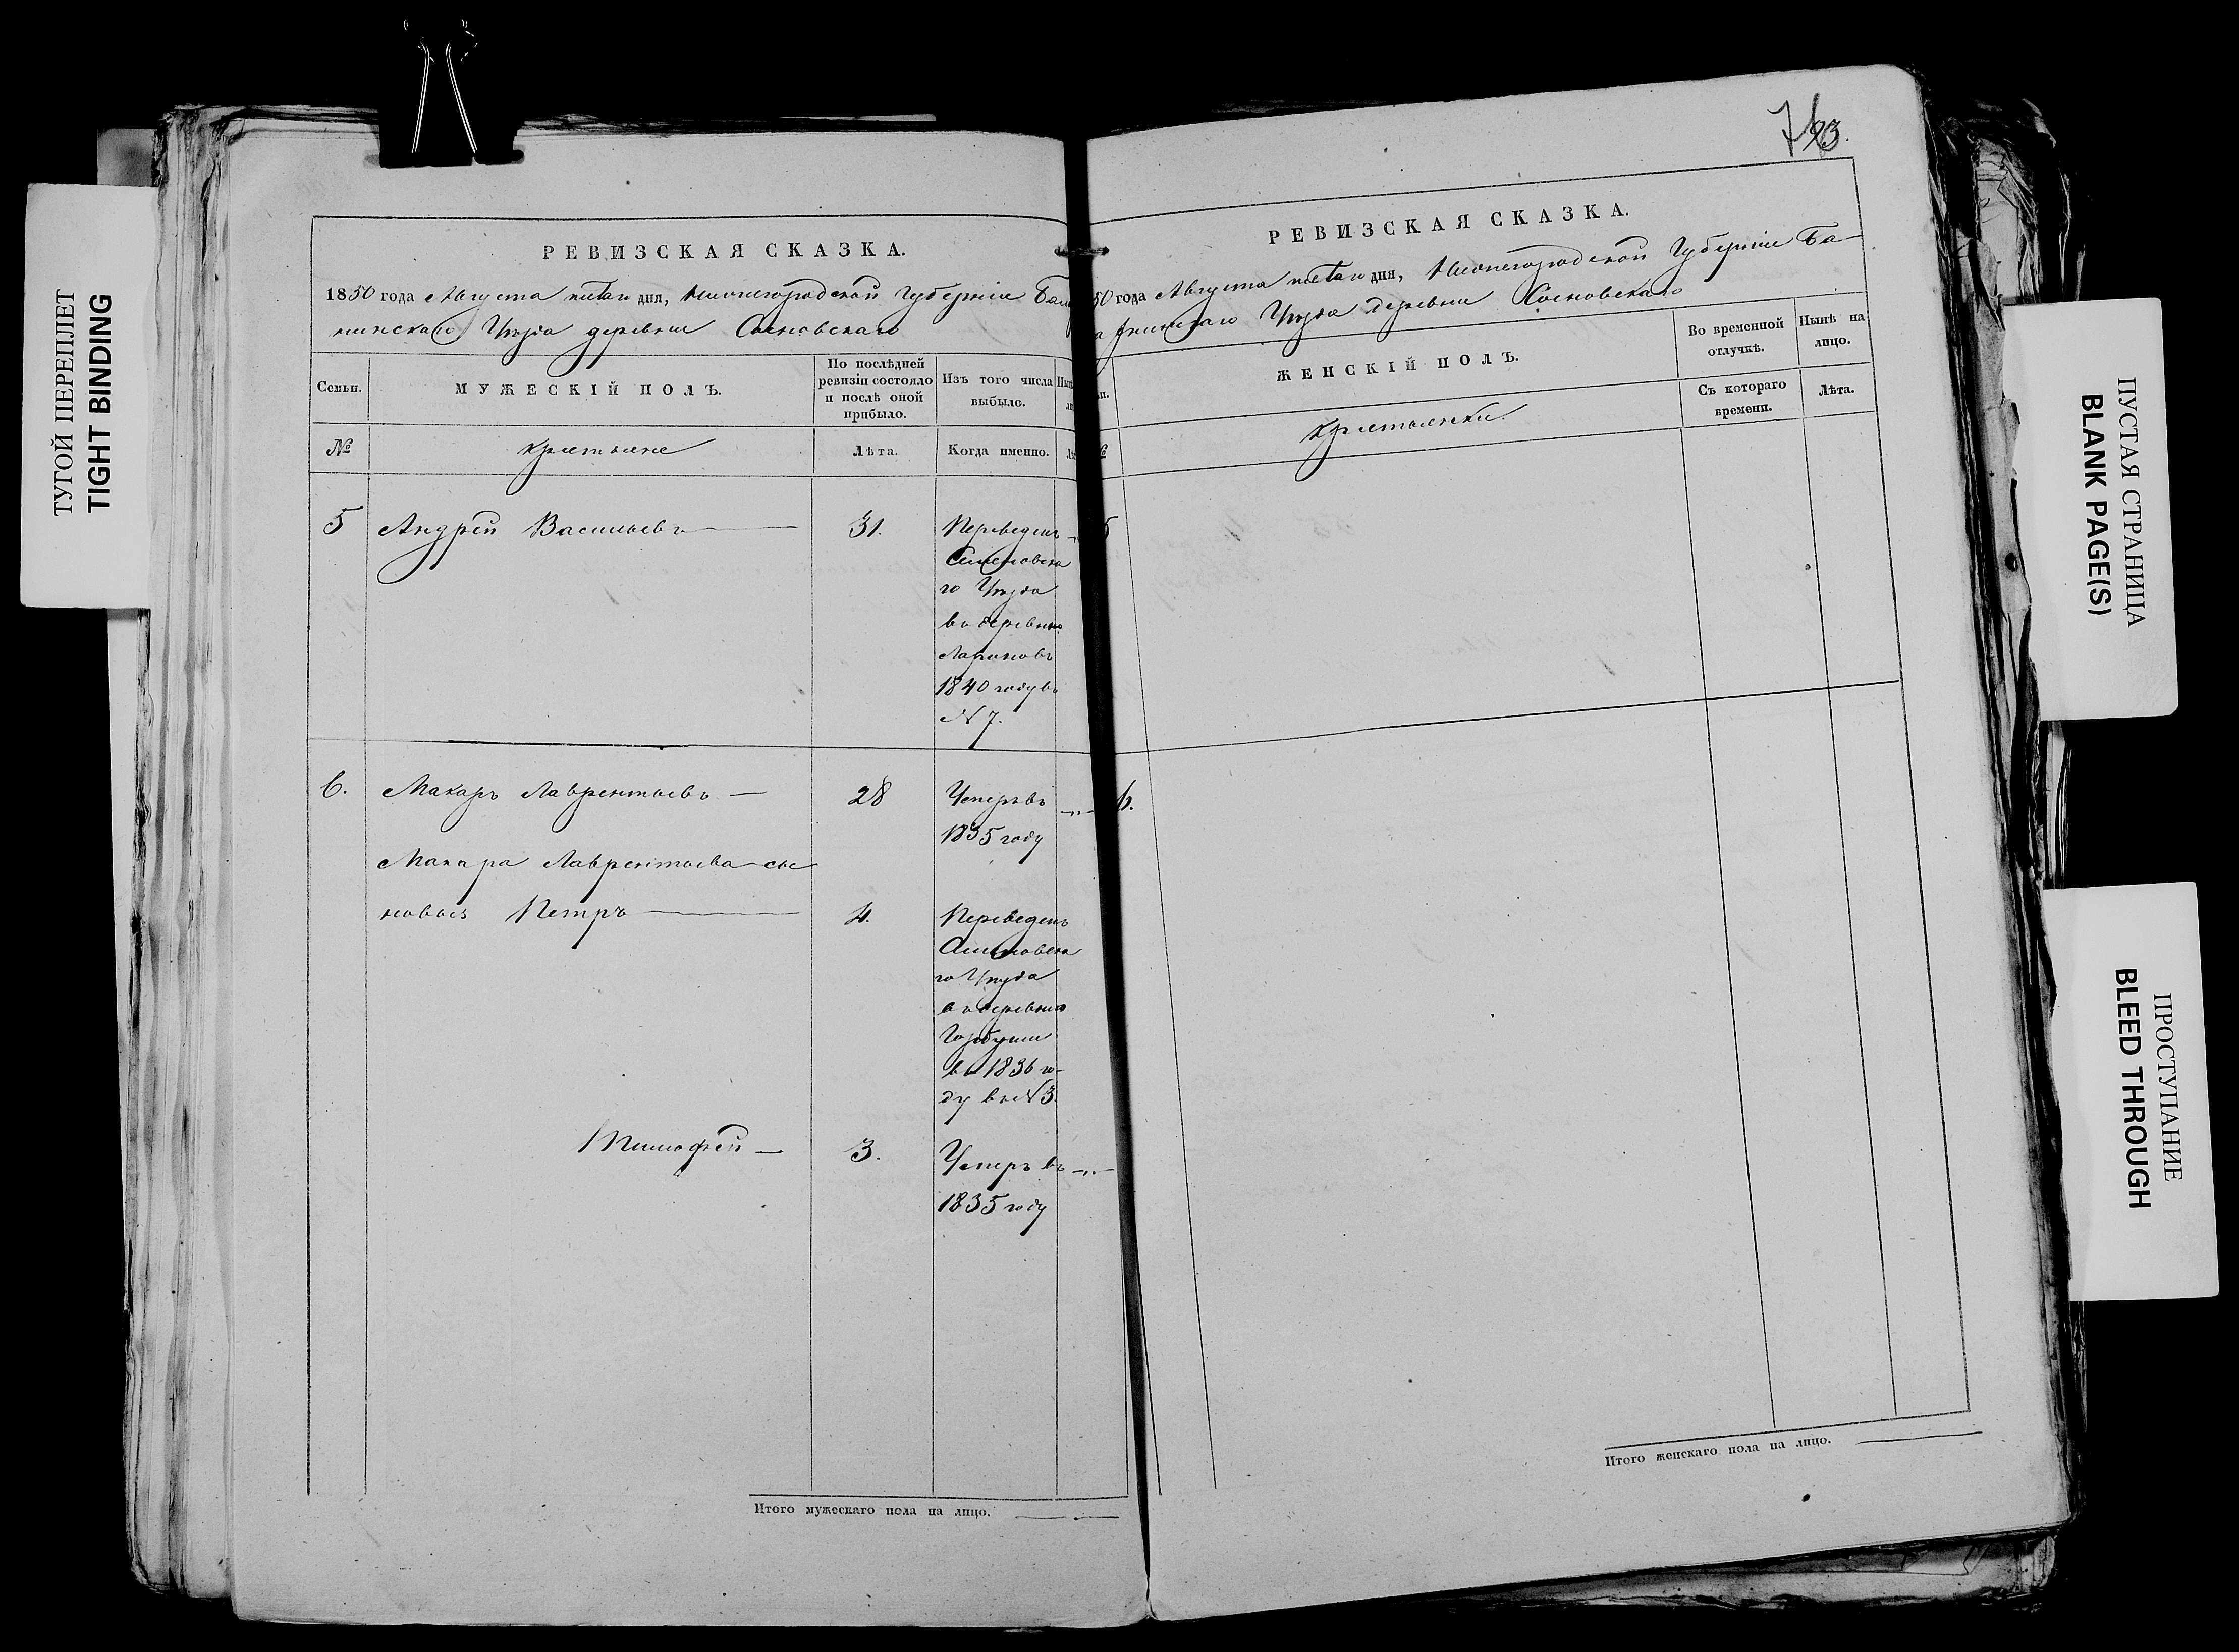 ТУГОЙ ПЕРЕПЛЕТ
TIGHT BINDING
РЕВИЗСКАЯ СКАЗКА.
1850 года Августа пятаго дня, Нижегородской Губернiи Бала
нинскаго Уѣзда деревни Сосновскаго
Семьи.
МУЖЕСКIЙ ПОЛЪ.
По послѣдней
ревизiи состояло
и послѣ оной
прибыло.
Изъ того числа
выбыло.
№
крестьяне
Лѣта.
Когда именно.
5 Андрей Васильевъ 31. Переведенъ
Семеновска
го Уѣзда
въ деревню
1840 году въ
N 7.
6. Макаръ Лаврентьевъ 28 Умеръ въ
1835 году
Макара Лаврентьева сы
новья Петръ 4. Переведенъ
Семеновска
го Уѣзда
въ деревню
въ 1836 го-
ду въ N 3.
Тимофей 3. Умеръ въ
1835 году
Итого мужескаго пола на лицо.
РЕВИЗСКАЯ СКАЗКА.
50 года Августа пятаго дня, Нижегородской Губернiи Ба-
Уѣзда деревни Сосновскаго
ЖЕНСКIЙ ПОЛЪ.
Во временной
отлучкѣ.
Нынѣ на
лицо.
Съ котораго
времени.
Лѣта.
крестьянки.
5
6.
Итого женскаго пола на лицо.
ПУСТАЯ СТРАНИЦА
BLANK PAGE(S)
ПРОСТУПАНИЕ
BLEED THROUGH